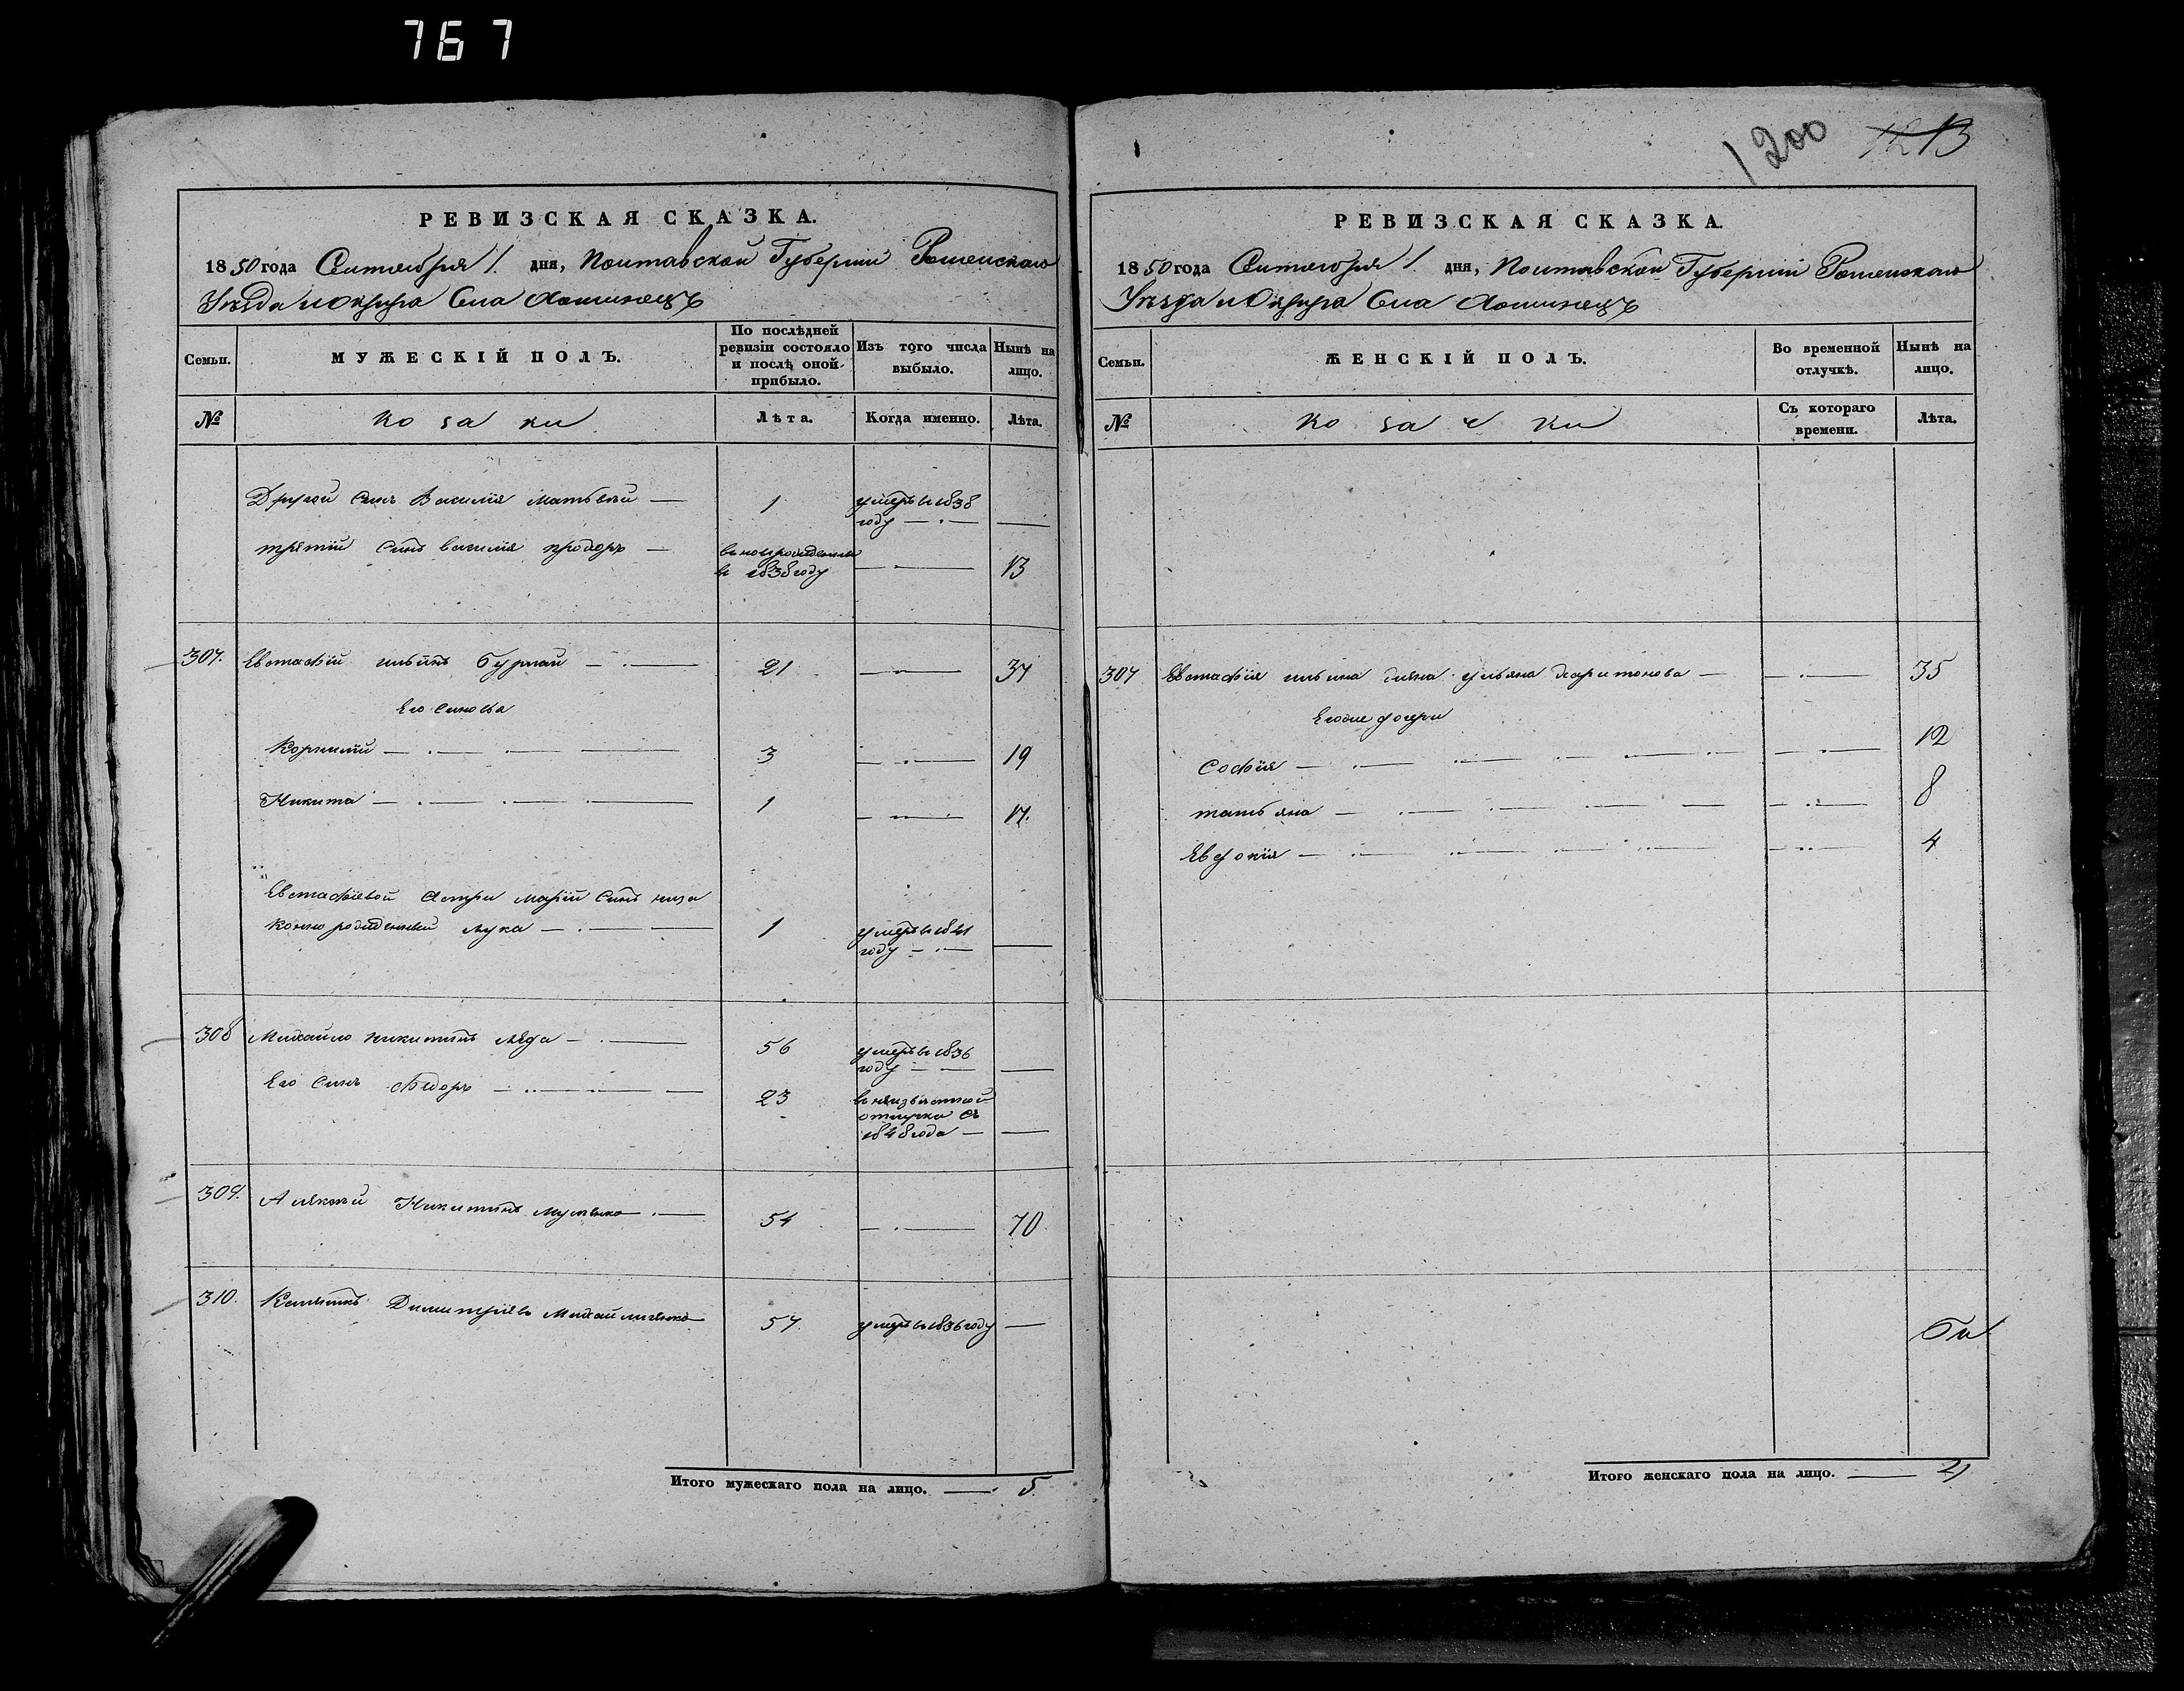 767
РЕВИЗСКАЯ СКАЗКА.
1850 года Сентября 1. дня, Полтавской Губернии Роменскаго
Уѣзда и Округа Села
Семьи. МУЖЕСКІЙ ПОЛЪ. По послѣдней ревизіи состояло и послѣ оной прибыло. Изъ того числа выбыло. Нынѣ на лицо.
№ Козаки Лѣта. Когда именно. Лѣта.
Другой Синъ Василія Матвѣй — 1 умеръ в 1838
году — —
третій Синъ Василія — 13
в 1838 году
307. Евстафій Ильинъ Бурлай — 21 — 34
Его Синовья
Корнилій — 3 — 19
Никита — 1 — 17.
Евстафіевой Сестри Маріи Синъ неза
конно рожденный Лука — 1 умеръ в 1841
году — —
308 Михайло Никитинъ — 56 умеръ в 1836
году — —
Его Синъ Федоръ — 23 в неизвѣстной
отлучки съ
1848 года — —
309. Алексѣй Никитинъ — 54 — 70
310. Димитріевъ Михайличенко 57. умеръ в 1836 году —
Итого мужескаго пола на лицо. — 5.
1200 1213
РЕВИЗСКАЯ СКАЗКА.
1850 года Сентября 1. дня, Полтавской Губерніи Роменскаго
Уѣзда и Округа Села
Семьи. ЖЕНСКІЙ ПОЛЪ. Во временной отлучкѣ. Нынѣ на лицо.
№ Козачки Съ котораго времени. Лѣта.
307 Евстафія Ильина жена Ульяна Харитонова — — 35
Егоже дочери
Софія — — 12
Татьяна — — 8
Евдокія — — 4
Итого женскаго пола на лицо. —